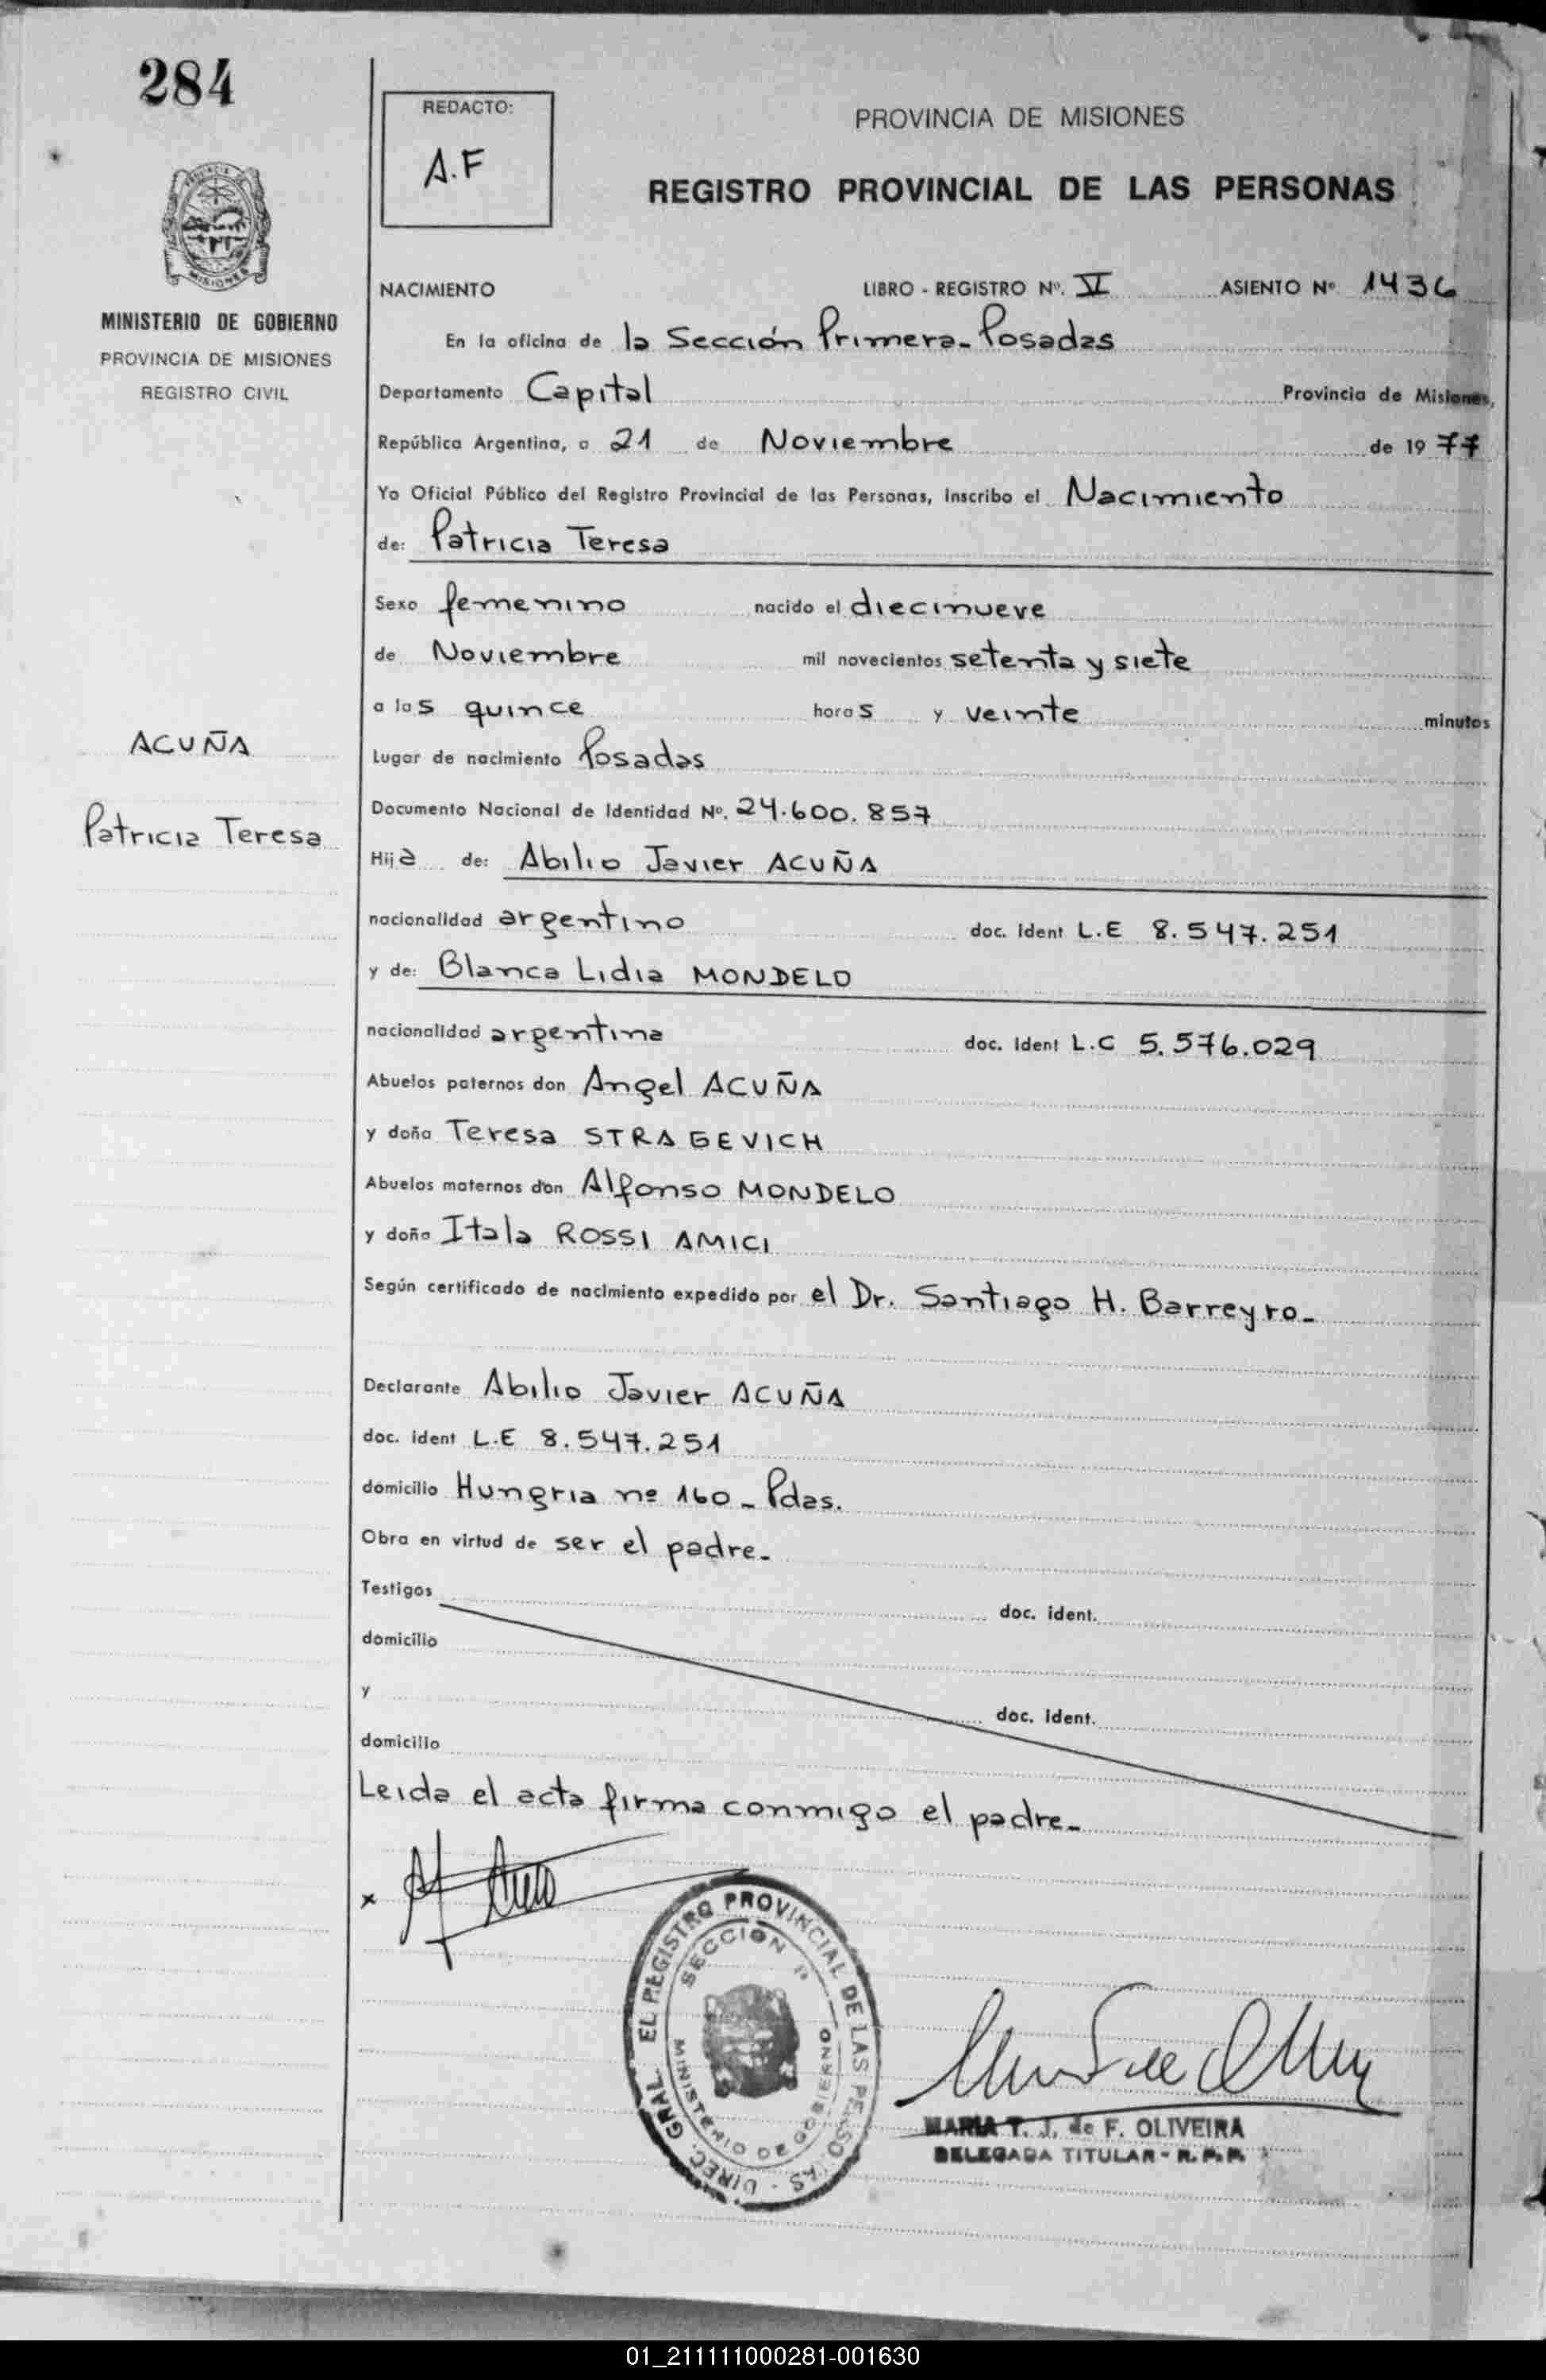 284
REDACTO:
A.F
PROVINCIA DE MISIONES
REGISTRO PROVINCIAL DE LAS PERSONAS
MISIONES
MINISTERIO DE GOBIERNO
PROVINCIA DE MISIONES
REGISTRO CIVIL
NACIMIENTO LIBRO - REGISTRO Nº. V ASIENTO Nº 1436
En la oficina de la Sección Primera - Posadas
Departamento Capital Provincia de Misiones,
República Argentina, a 21 de Noviembre de 1977
Yo Oficial Público del Registro Provincial de las Personas, inscribo el Nacimiento
de: Patricia Teresa
Sexo femenino nacido el diecinueve
de Noviembre mil novecientos setenta y siete
a las quince horas y veinte minutos
Lugar de nacimiento Posadas
ACUÑA
Patricia Teresa
Documento Nacional de Identidad Nº. 24.600.857
Hija de: Abilio Javier ACUÑA
nacionalidad argentino doc. ident L.E 8.547.251
y de: Blanca Lidia MONDELO
nacionalidad argentina doc. ident L.C 5.576.029
Abuelos paternos don Angel ACUÑA
y doña Teresa STRAGEVICH
Abuelos maternos don Alfonso MONDELO
y doña Itala ROSSI AMICI
Según certificado de nacimiento expedido por el Dr. Santiago H. Barreyro -
Declarante Abilio Javier ACUÑA
doc. ident L.E 8.547.251
domicilio Hungria nº 160 - Pdas.
Obra en virtud de ser el padre -
Testigos doc. ident.
domicilio
y doc. ident.
domicilio
Leida el acta firma conmigo el padre -
x
DIREC. GRAL. EL REGISTRO PROVINCIAL DE LAS PERSO AS
SECCION
MINISTERIO DE GOBIERNO
MARIA T. J. de F. OLIVEIRA
DELEGADA TITULAR - R. P. P.
01_211111000281-001630